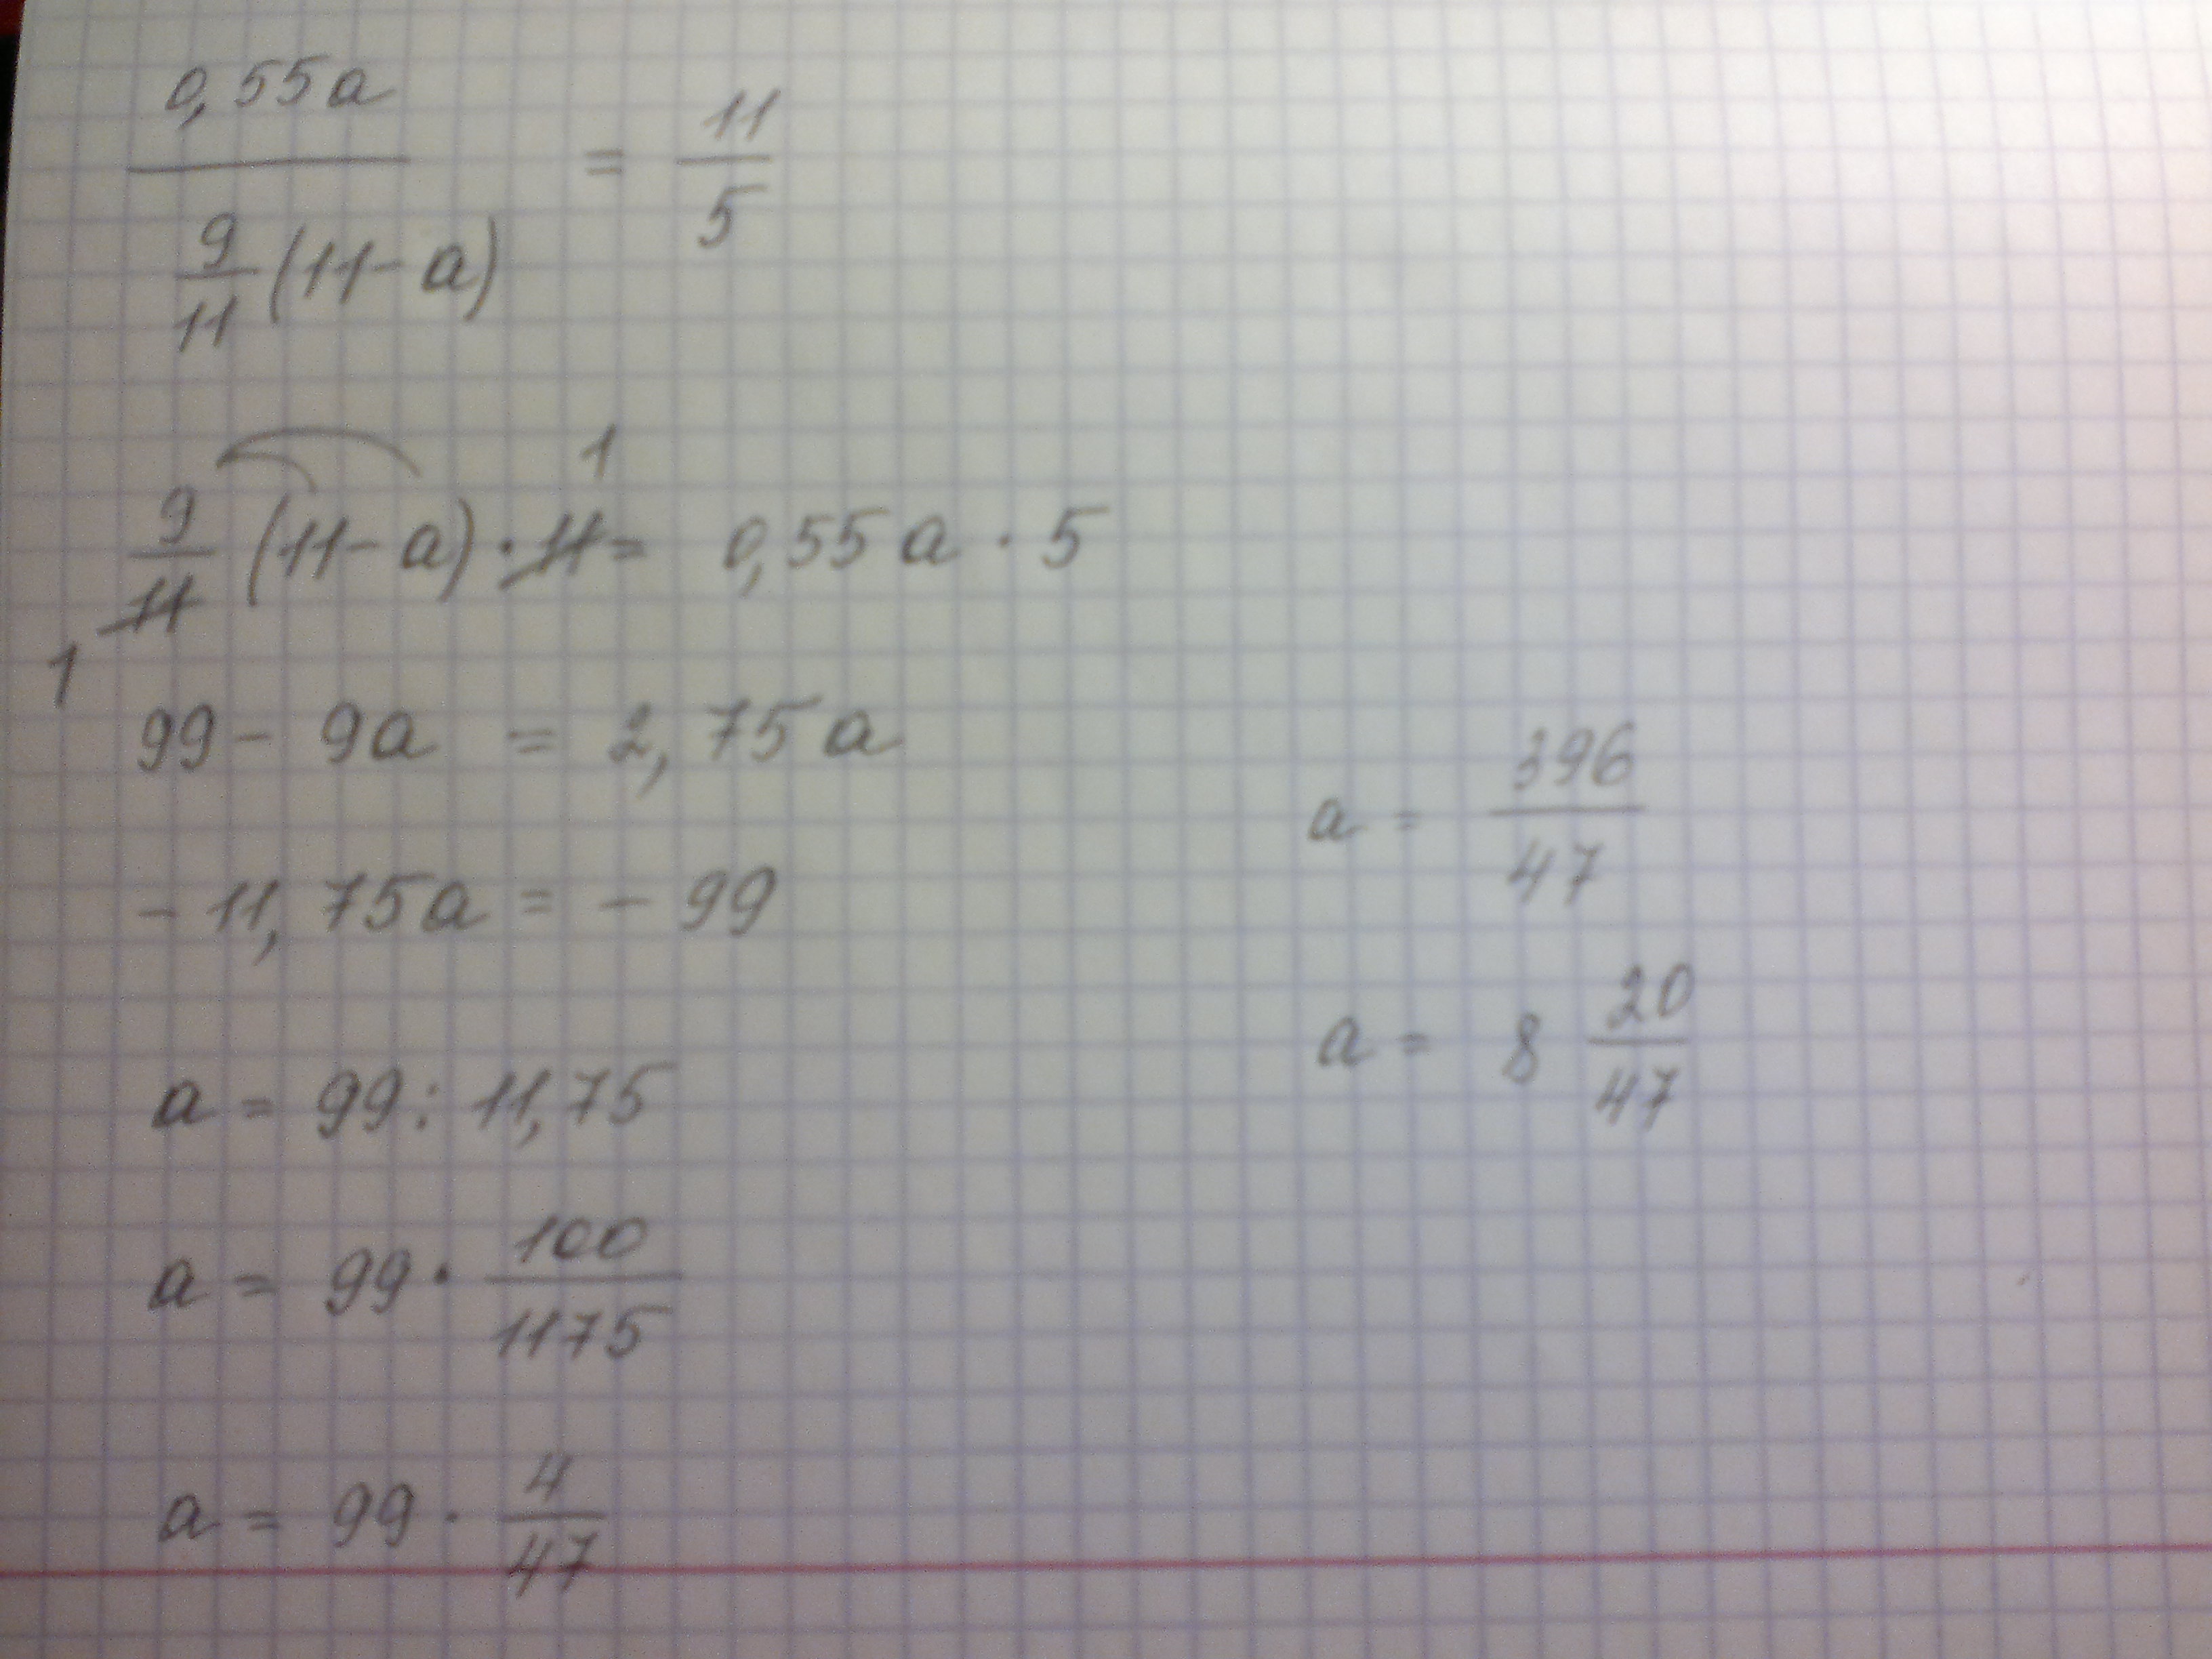 0,55a
――― = 11/5
9/11 (11-a)
9/11 (11-a) · 11 = 0,55a · 5
1 1
99 - 9a = 2,75a
- 11,75a = - 99
a = 99 : 11,75
a = 99 · 100/1175
a = 99 · 4/47
a = 396/47
a = 8 20/47